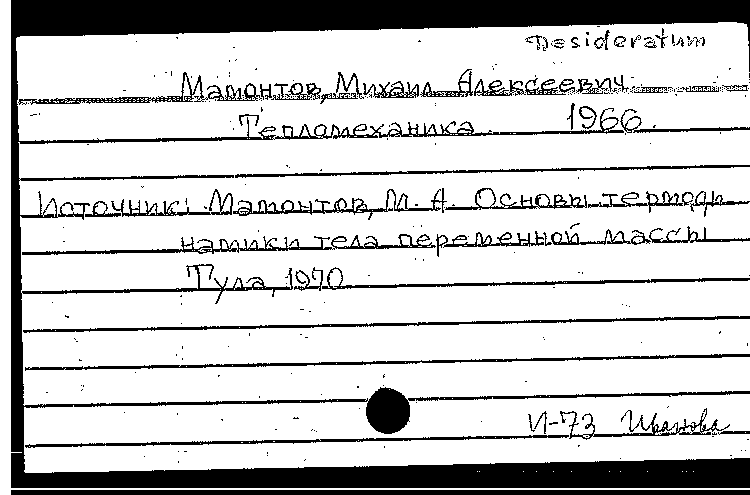 Desideratum
Мамонтов, Михаил Алексеевич
Тепломеханика. 1966.
Источник: Мамонтов, М. А. Основы термоди
намики тела переменной массы
Тула, 1970
И-73 Иванова